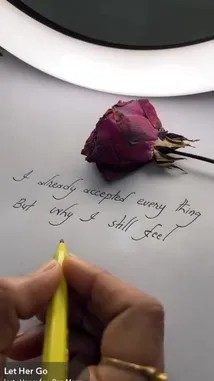 I already accepted every thing
But why I still feel
Let Her Go